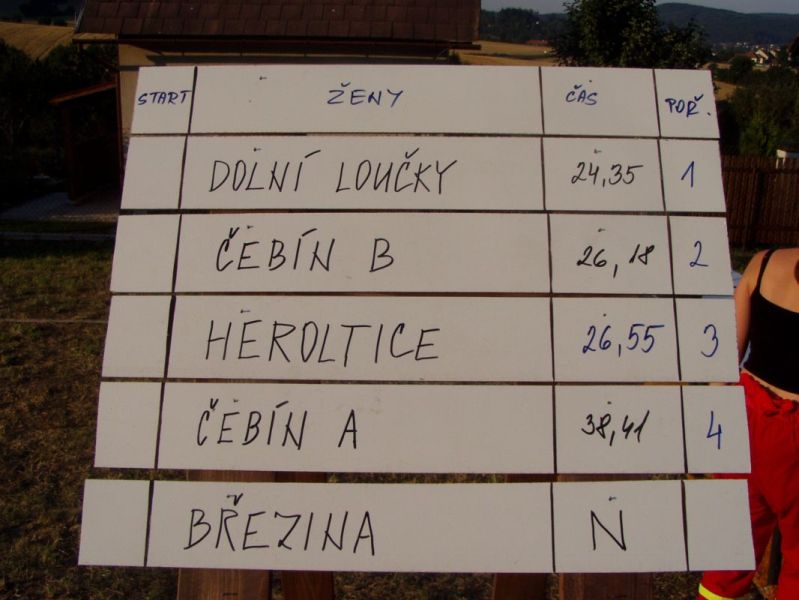 START ŽENY ČAS POŘ.
DOLNÍ LOUČKY 24,35 1
ČEBÍN B 26,18 2
HEROLTICE 26,55 3
ČEBÍN A 38,41 4
BŘEZINA N